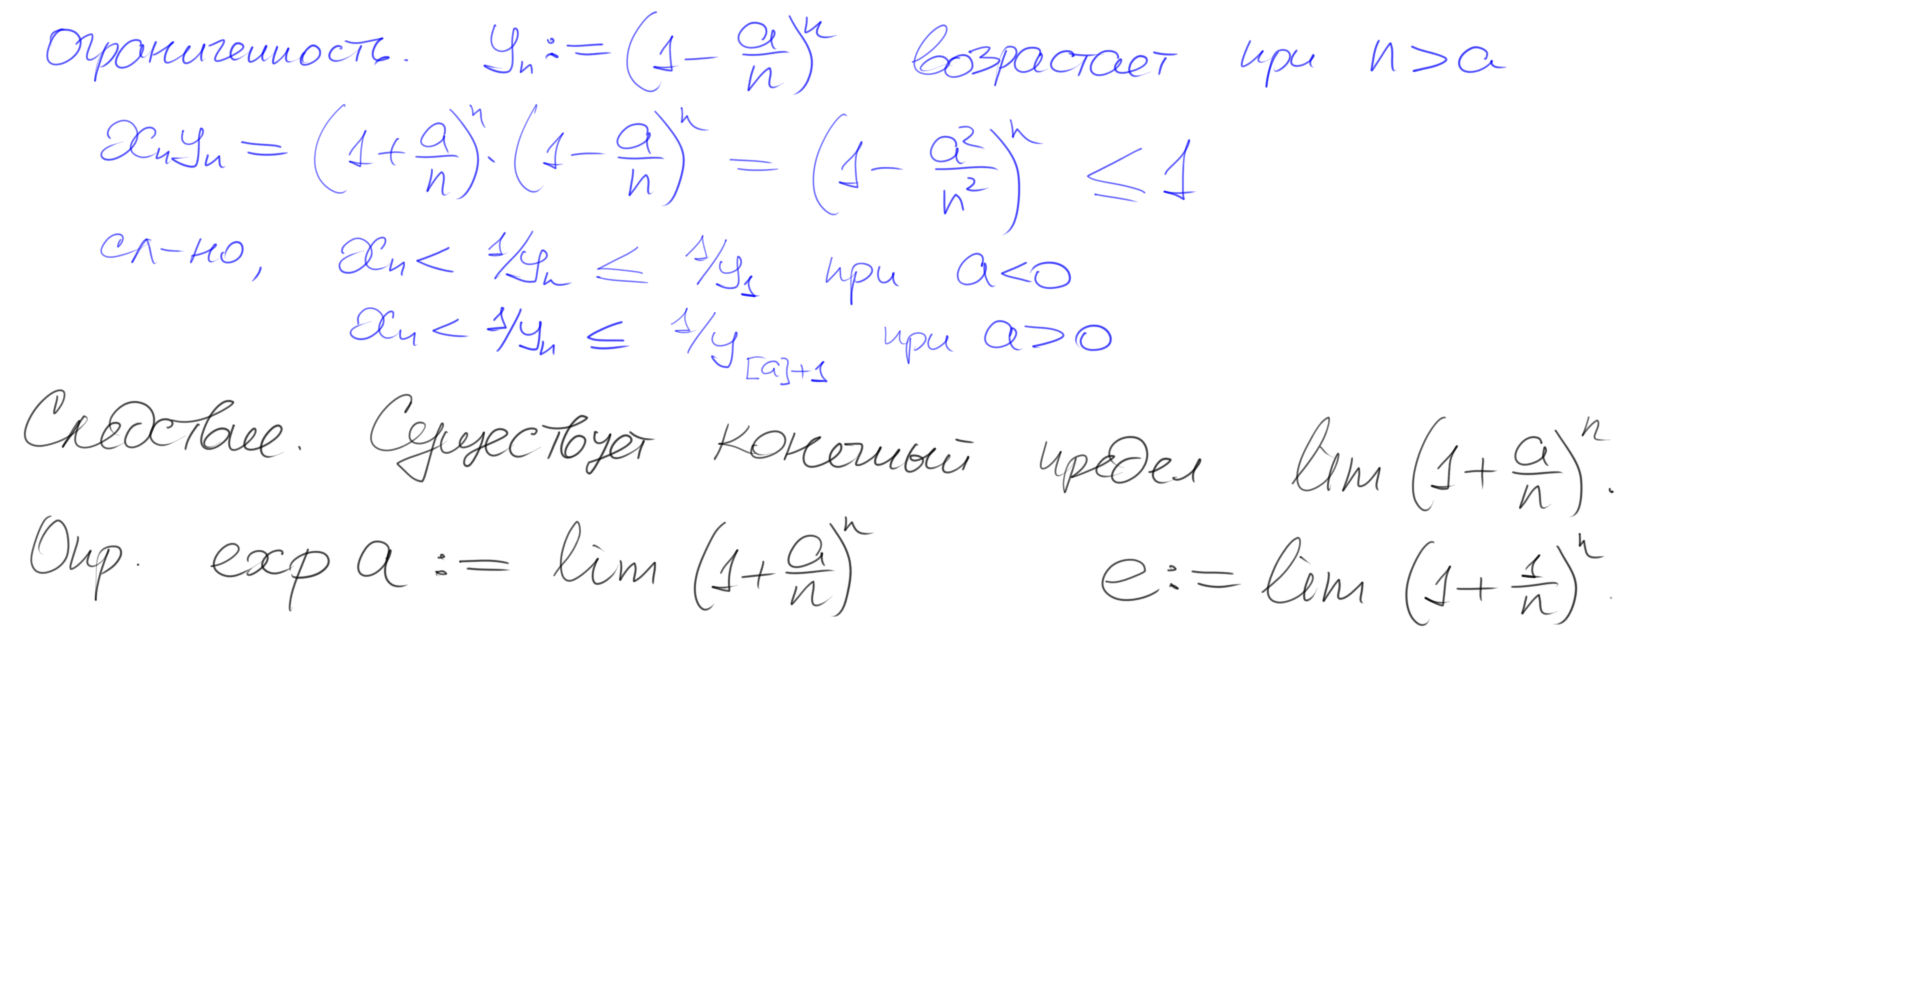 Ограниченность. yₙ := (1 − a/n)ⁿ возрастает при n > a
xₙyₙ = (1 + a/n)ⁿ · (1 − a/n)ⁿ = (1 − a²/n²)ⁿ ≤ 1
сл-но, xₙ < 1/yₙ ≤ 1/y₁ при a < 0
xₙ < 1/yₙ ≤ 1/y_{[a]+1} при a > 0
Следствие. Существует конечный предел lim (1 + a/n)ⁿ.
Опр. exp a := lim (1 + a/n)ⁿ e := lim (1 + 1/n)ⁿ.